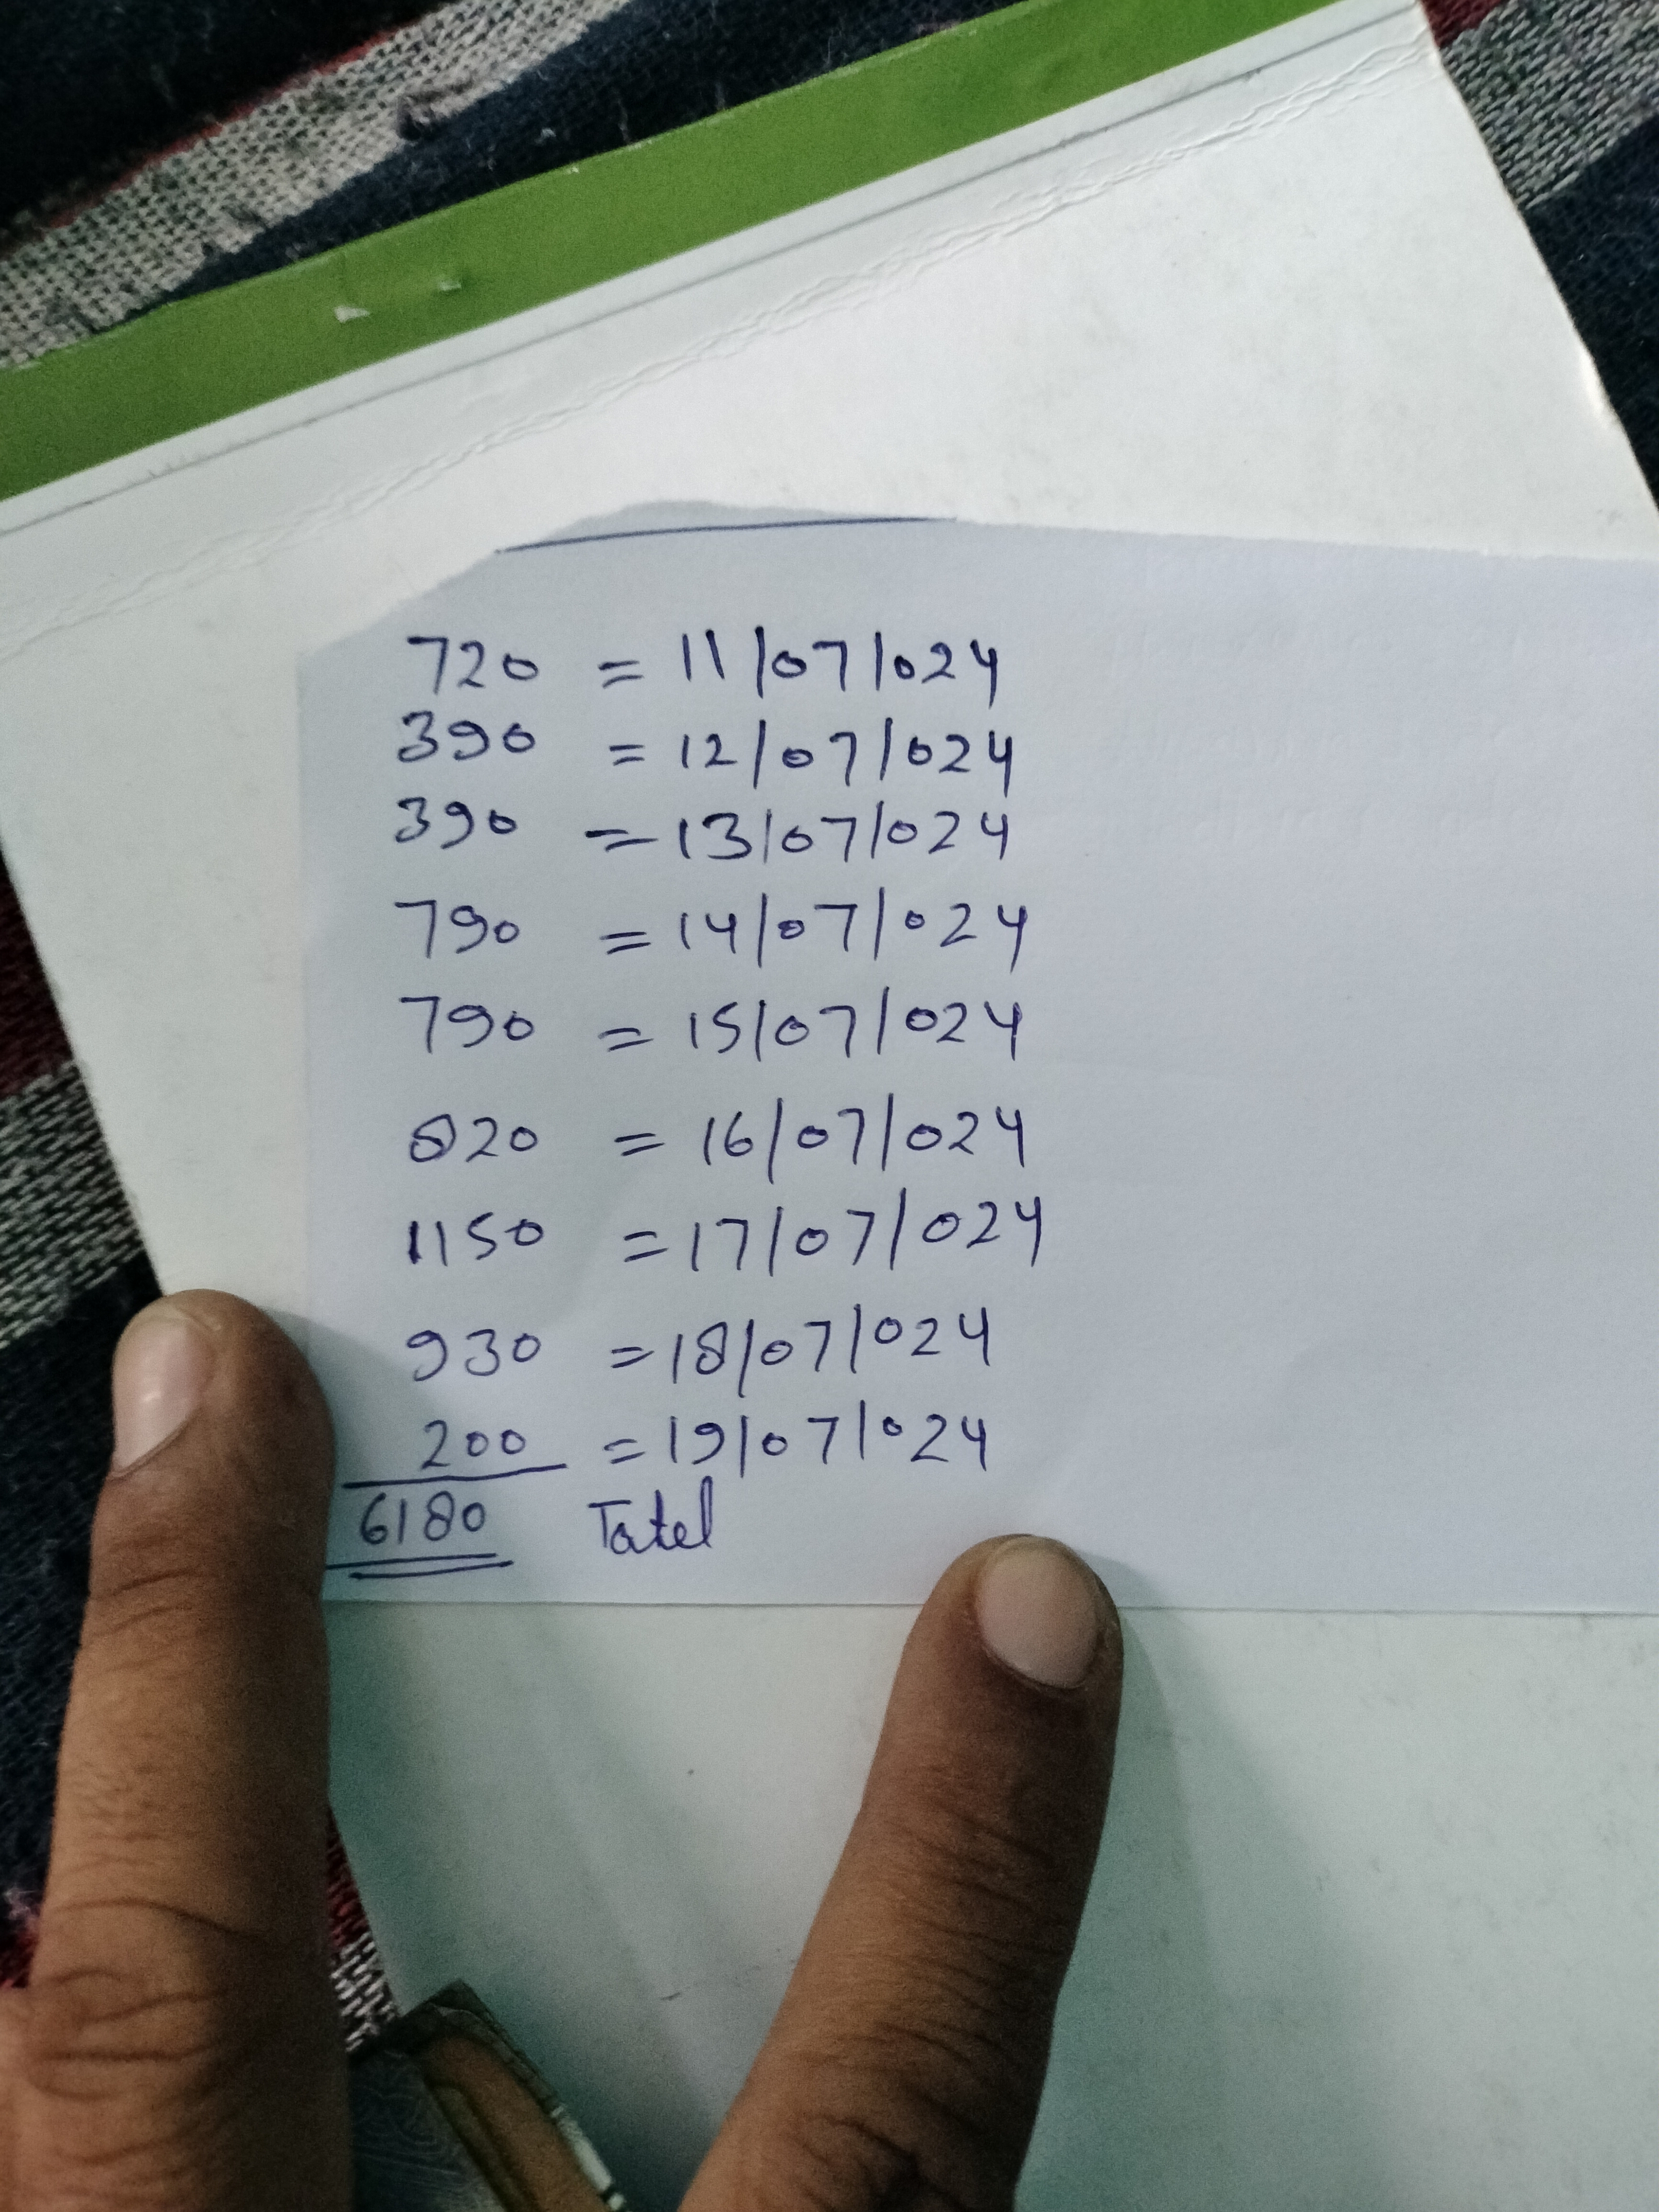 720 = 11/07/024
390 = 12/07/024
390 = 13/07/024
790 = 14/07/024
790 = 15/07/024
820 = 16/07/024
1150 = 17/07/024
930 = 18/07/024
200 = 19/07/024
6180 Tatel